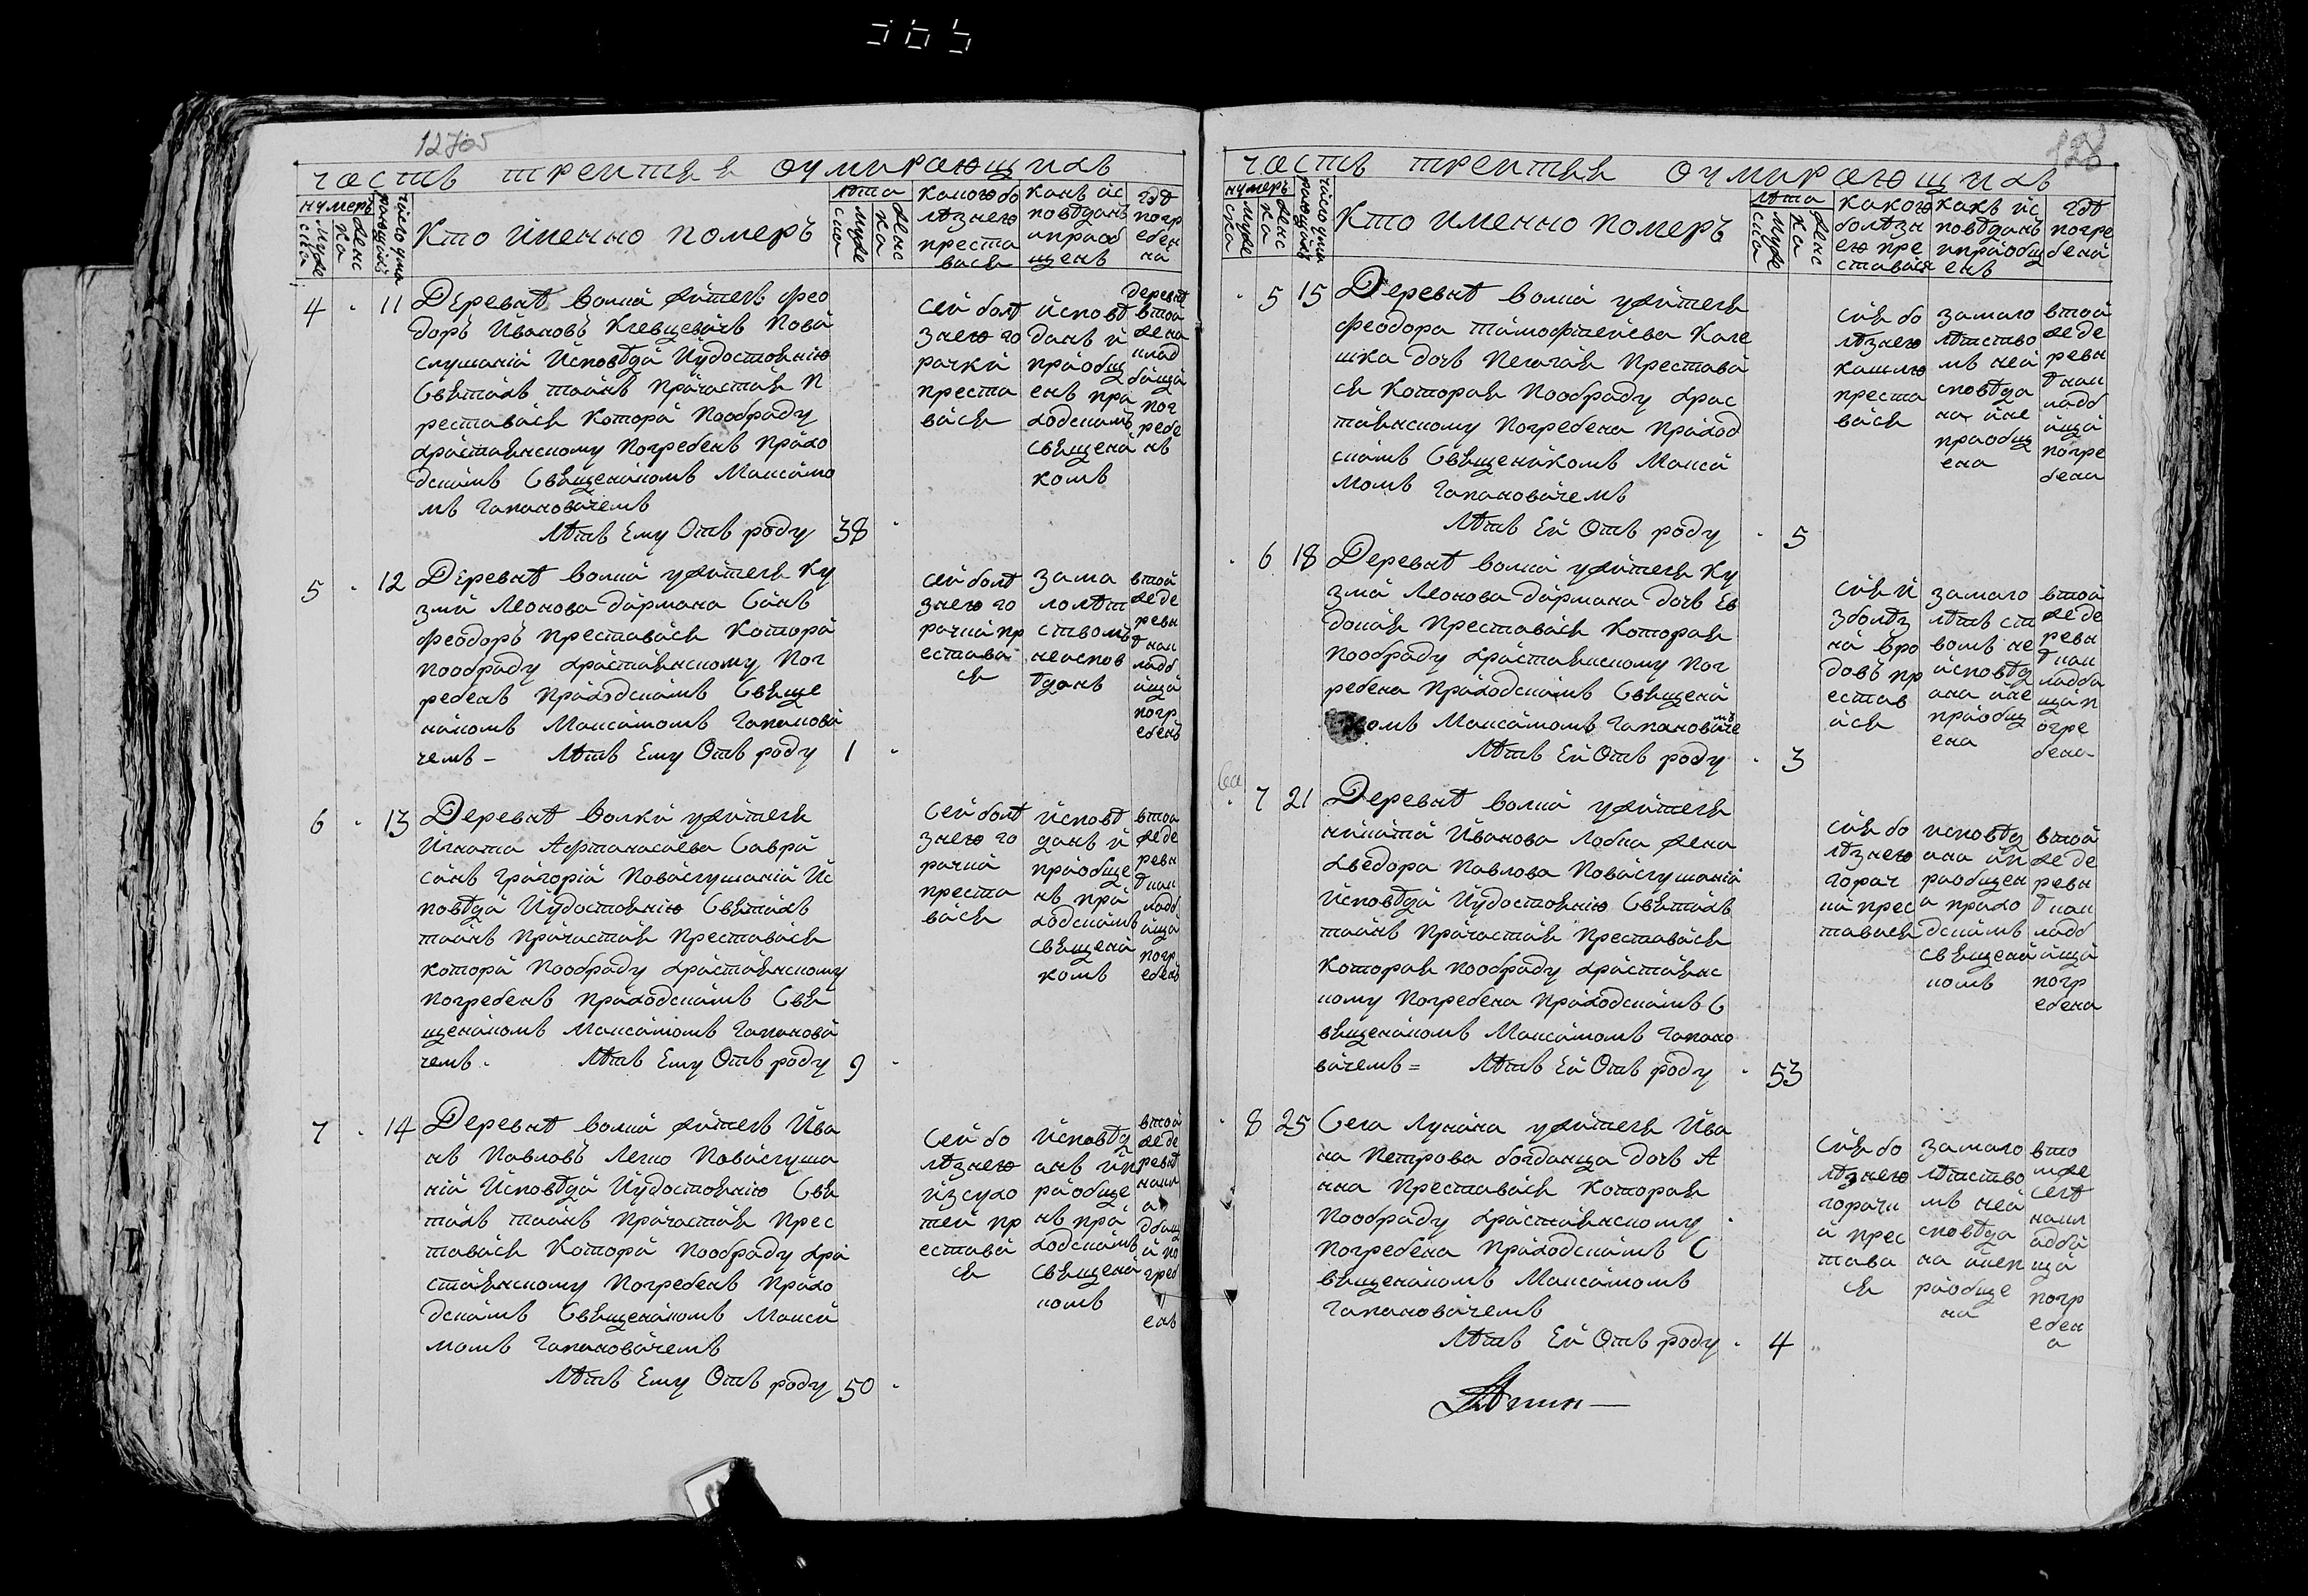 часть третья оумирающихъ
нумеръ
Кто именно померъ
лѣта
какою бо
лѣзнею
преста
вася
какъ ис
повѣданъ
ипріоб
щенъ
гдѣ
погр
ебен
на
4 11 Деревнѣ волки житель Фео
доръ Ивановъ Клевцевичъ Пови
слушаніи Исповѣди Иудостоянію
Святихъ таинъ причастия п
реставися которй пообряду
християнскому погребенъ прихо
дскимъ Священикомъ Максимо
мъ Гапановичемъ
лѣтъ Ему Отъ роду 38
сей болѣ
знею го
рачки
преста
вися
исповѣ
данъ и
приобщ
енъ при
ходскимъ
священи
комъ
деревнѣ
втой
жена
клад
бищи
пог
ребе
нъ
5 12 Деревнѣ волки ужителя Ку
зми Леонова дирмана Синъ
Феодоръ преставися которй
пообряду християнскому пог
ребенъ приходскимъ Свяще
никомъ Максимомъ Гапанови
чемъ - лѣтъ Ему Отъ роду 1
сей болѣ
знею го
рачки пр
естави
ся
зама
лолѣт
ствомъ
неиспов
ѣданъ
втой
жеде
ревн
ѣнак
ладб
ищи
погр
ебенъ
6 13 Деревнѣ Волки ужителя
Игната Афтанасиева Саври
синъ Григорій Повислушаніи Ис
повѣди Иудостоянію Святихъ
таинъ причастия преставися
которй пообряду християнскому
погребенъ приходскимъ Свя
щеникомъ Максимомъ Гапанови
чемъ. лѣтъ Ему Отъ роду 9
Сей болѣ
знею го
рачки
преста
вися
исповѣ
данъ и
приобще
нъ при
ходскимъ
священи
комъ
втой
жеде
ревн
ѣнак
ладб
ищи
погр
ебенъ
7 14 Деревнѣ волки житель Ива
нъ Павловъ Легко Повислуша
ніи Исповѣди Иудостоянію Свя
тихъ таинъ причастия прес
тавися которй пообряду хри
стиянскому погребенъ прихо
дскимъ Священикомъ Макси
момъ Гапановичемъ
лѣтъ Ему Отъ роду 50
сей бо
лѣзнею
изсухо
тей пр
естави
ся
исповѣд
анъ ип
риобще
нъ при
ходскимъ
священи
комъ
втой
жеде
ревнѣ
накл
а
дбищ
и по
греб
енъ
128
часть третья оумирающихъ
нумеръ
Кто именно померъ
лѣта
какою
болѣзн
ею пре
ставися
какъ ис
повѣданъ
ипріобщ
енъ
гдѣ
погре
бена
5 15 Деревнѣ волки ужителя
Феодора Тимофѣеиева Кале
шка дочь Пелагия Преставі
ся которая пообряду хрис
тиянскому погребена приход
скимъ Священикомъ Макси
момъ Гапановичемъ
лѣтъ Ей Отъ роду 5
сия бо
лѣзнею
кашлю
преста
вися
замало
лѣтство
мъ неи
сповѣда
на ине
приобщ
ена
втой
жеде
ревн
ѣнак
ладб
ищи
погре
бена
6 18 Деревнѣ волки ужителя Ку
зми Леонова дирмана дочь Ев
докия Преставися которая
пообряду християнскому пог
ребена приходскимъ Священи
комъ Максимомъ Гапановиче
мъ
лѣтъ Ей Отъ роду 3
сия и
зболѣз
ни вро
довъ пр
естав
ися
замало
лѣтъ ст
вомъ не
исповѣд
ана ине
приобщ
ена
втой
жеде
ревн
ѣнак
ладби
щи п
огре
бена
7 21 Деревнѣ волки ужителя
никити Иванова Лобка жена
хведора Павлова Повислушаніи
Исповѣди Иудостоянію Святихъ
таинъ причастия Преставися
которая пообряду християнс
кому погребена приходскимъ С
вященикомъ Максимомъ Гапано
вичемъ = лѣтъ Ей Отъ роду 53
сия бо
лѣзнею
горач
ки прес
тавися
исповѣд
ана ип
риобщен
а прихо
дскимъ
священи
комъ
втой
жеде
ревн
ѣнак
ладб
ищи
погр
ебена
8 25 Села Лунина ужителя Ива
на Петрова богданца дочь А
нна Преставися которая
пообряду християнскому
погребена приходскимъ С
вященикомъ Максимомъ
Гапановичемъ
лѣтъ Ей Отъ роду 4
сия бо
лѣзнею
горачк
и прес
тави
ся
замало
лѣтство
мъ неи
сповѣда
на инеп
риобще
на
вто
мже
селѣ
накл
адби
щи
погр
ебен
а